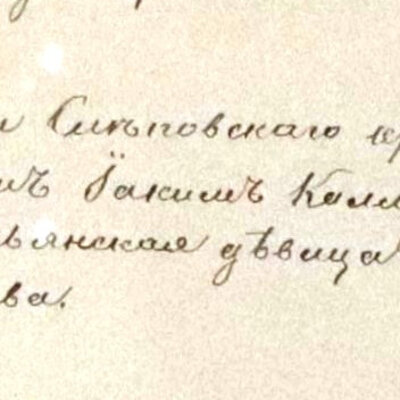 Слѣповскаго кр
мъ Їакимъ Кал
ьянская дѣвица
ва.